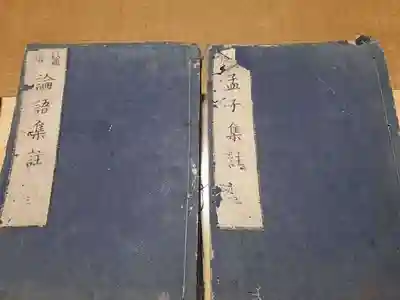 論語集註
孟子集註